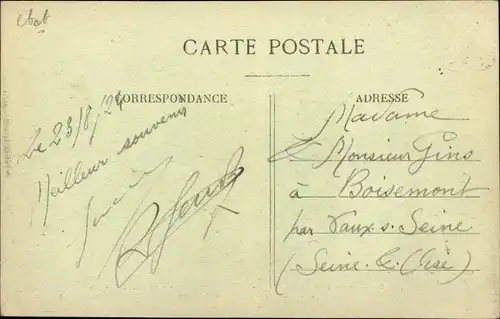 CARTE POSTALE
CORRESPONDANCE
Le 23/8/24
Meilleur souvenir
ADRESSE
Madame
& Monsieur Gins
à Boisemont
par Vaux s. Seine
(Seine & Oise)